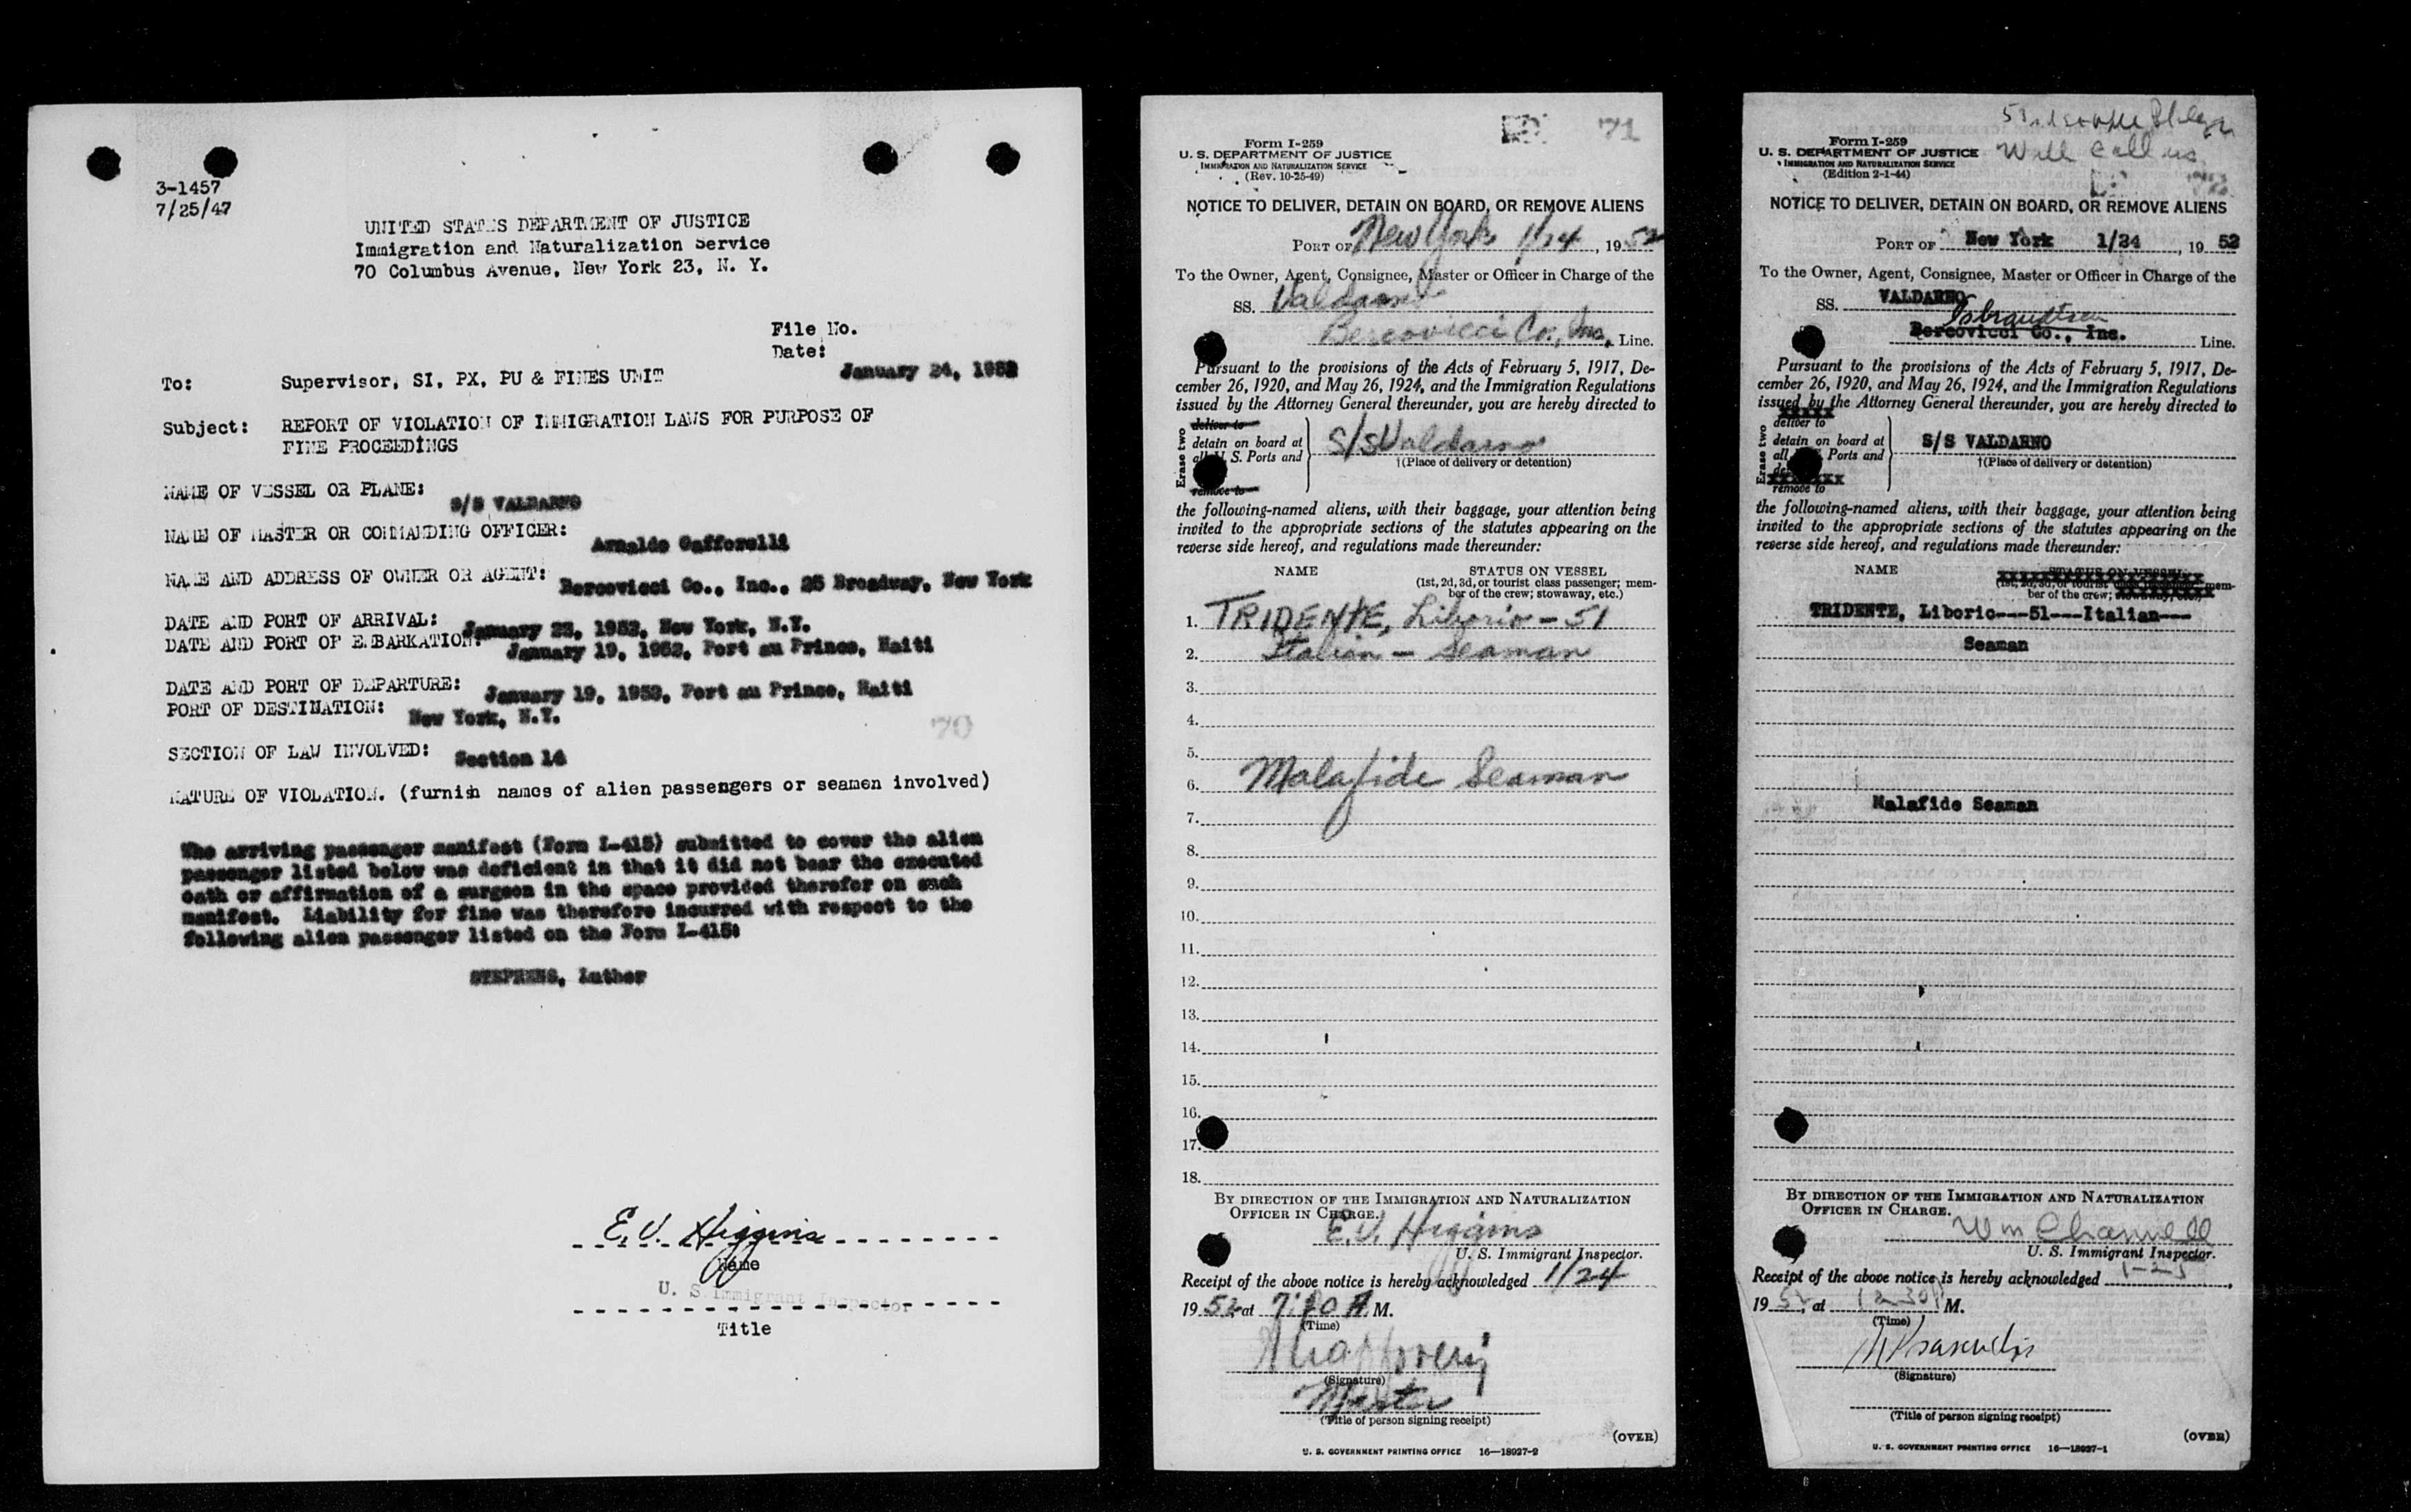 3-1457
7/25/47
UNITED STATES DEPARTMENT OF JUSTICE
Immigration and Naturalization Service
70 Columbus Avenue, New York 23, N. Y.
File No.
Date:
January 24, 1952
To: Supervisor, SI, PX, PU & FINES UNIT
Subject: REPORT OF VIOLATION OF IMMIGRATION LAWS FOR PURPOSE OF
FINE PROCEEDINGS
NAME OF VESSEL OR PLANE: S/S VALDARNO
NAME OF MASTER OR COMMANDING OFFICER: Arnaldo Gafforelli
NAME AND ADDRESS OF OWNER OR AGENT: Bercovicci Co., Inc., 25 Broadway, New York
DATE AND PORT OF ARRIVAL: January 23, 1952, New York, N.Y.
DATE AND PORT OF EMBARKATION: January 19, 1952, Port au Prince, Haiti
DATE AND PORT OF DEPARTURE: January 19, 1952, Port au Prince, Haiti
PORT OF DESTINATION: New York, N.Y.
70
SECTION OF LAW INVOLVED: Section 14
NATURE OF VIOLATION. (furnish names of alien passengers or seamen involved)
The arriving passenger manifest (Form I-415) submitted to cover the alien
passenger listed below was deficient in that it did not bear the executed
oath or affirmation of a surgeon in the space provided therefor on such
manifest. Liability for fine was therefore incurred with respect to the
following alien passenger listed on the Form I-415:
STEPHENS, Luther
E.V. Higgins
Name
U. S. Immigrant Inspector
Title
71
Form I-259
U. S. DEPARTMENT OF JUSTICE
IMMIGRATION AND NATURALIZATION SERVICE
(Rev. 10-25-49)
NOTICE TO DELIVER, DETAIN ON BOARD, OR REMOVE ALIENS
PORT OF New York 1/24, 1952
To the Owner, Agent, Consignee, Master or Officer in Charge of the
SS. Valdarno
Bercovicci Co., Inc. Line.
Pursuant to the provisions of the Acts of February 5, 1917, De-
cember 26, 1920, and May 26, 1924, and the Immigration Regulations
issued by the Attorney General thereunder, you are hereby directed to
Erase two
deliver to
detain on board at
all U. S. Ports and
remove to
S/S Valdarno
†(Place of delivery or detention)
the following-named aliens, with their baggage, your attention being
invited to the appropriate sections of the statutes appearing on the
reverse side hereof, and regulations made thereunder:
NAME STATUS ON VESSEL
(1st, 2d, 3d, or tourist class passenger; mem-
ber of the crew; stowaway, etc.)
1. TRIDENTE, Liborio - 51
2. Italian - Seaman
3.
4.
5.
6. Malafide Seaman
7.
8.
9.
10.
11.
12.
13.
14.
15.
16.
17.
18.
BY DIRECTION OF THE IMMIGRATION AND NATURALIZATION
OFFICER IN CHARGE.
E.V. Higgins
U. S. Immigrant Inspector.
Receipt of the above notice is hereby acknowledged 1/24
1952 at A.M.
(Time)
(Signature)
Master
(Title of person signing receipt)
(OVER)
U. S. GOVERNMENT PRINTING OFFICE 16—18927-2
Will call us
Form I-259
U. S. DEPARTMENT OF JUSTICE
IMMIGRATION AND NATURALIZATION SERVICE
(Edition 2-1-44)
NOTICE TO DELIVER, DETAIN ON BOARD, OR REMOVE ALIENS
PORT OF New York 1/24, 1952
To the Owner, Agent, Consignee, Master or Officer in Charge of the
SS. VALDARNO
Isbrandtsen
Bercovicci Co., Inc. Line.
Pursuant to the provisions of the Acts of February 5, 1917, De-
cember 26, 1920, and May 26, 1924, and the Immigration Regulations
issued by the Attorney General thereunder, you are hereby directed to
Erase two
deliver to
detain on board at
all Ports and
remove to
S/S VALDARNO
†(Place of delivery or detention)
the following-named aliens, with their baggage, your attention being
invited to the appropriate sections of the statutes appearing on the
reverse side hereof, and regulations made thereunder:
NAME STATUS ON VESSEL
(1st, 2d, 3d, or tourist class passenger; mem-
ber of the crew; stowaway, etc.)
TRIDENTE, Liborio---51---Italian---
Seaman
Malafide Seaman
BY DIRECTION OF THE IMMIGRATION AND NATURALIZATION
OFFICER IN CHARGE.
Wm
U. S. Immigrant Inspector.
Receipt of the above notice is hereby acknowledged 1-25,
1952, at 1230 P M.
(Time)
(Signature)
(Title of person signing receipt)
(OVER)
U. S. GOVERNMENT PRINTING OFFICE 16—18927-1